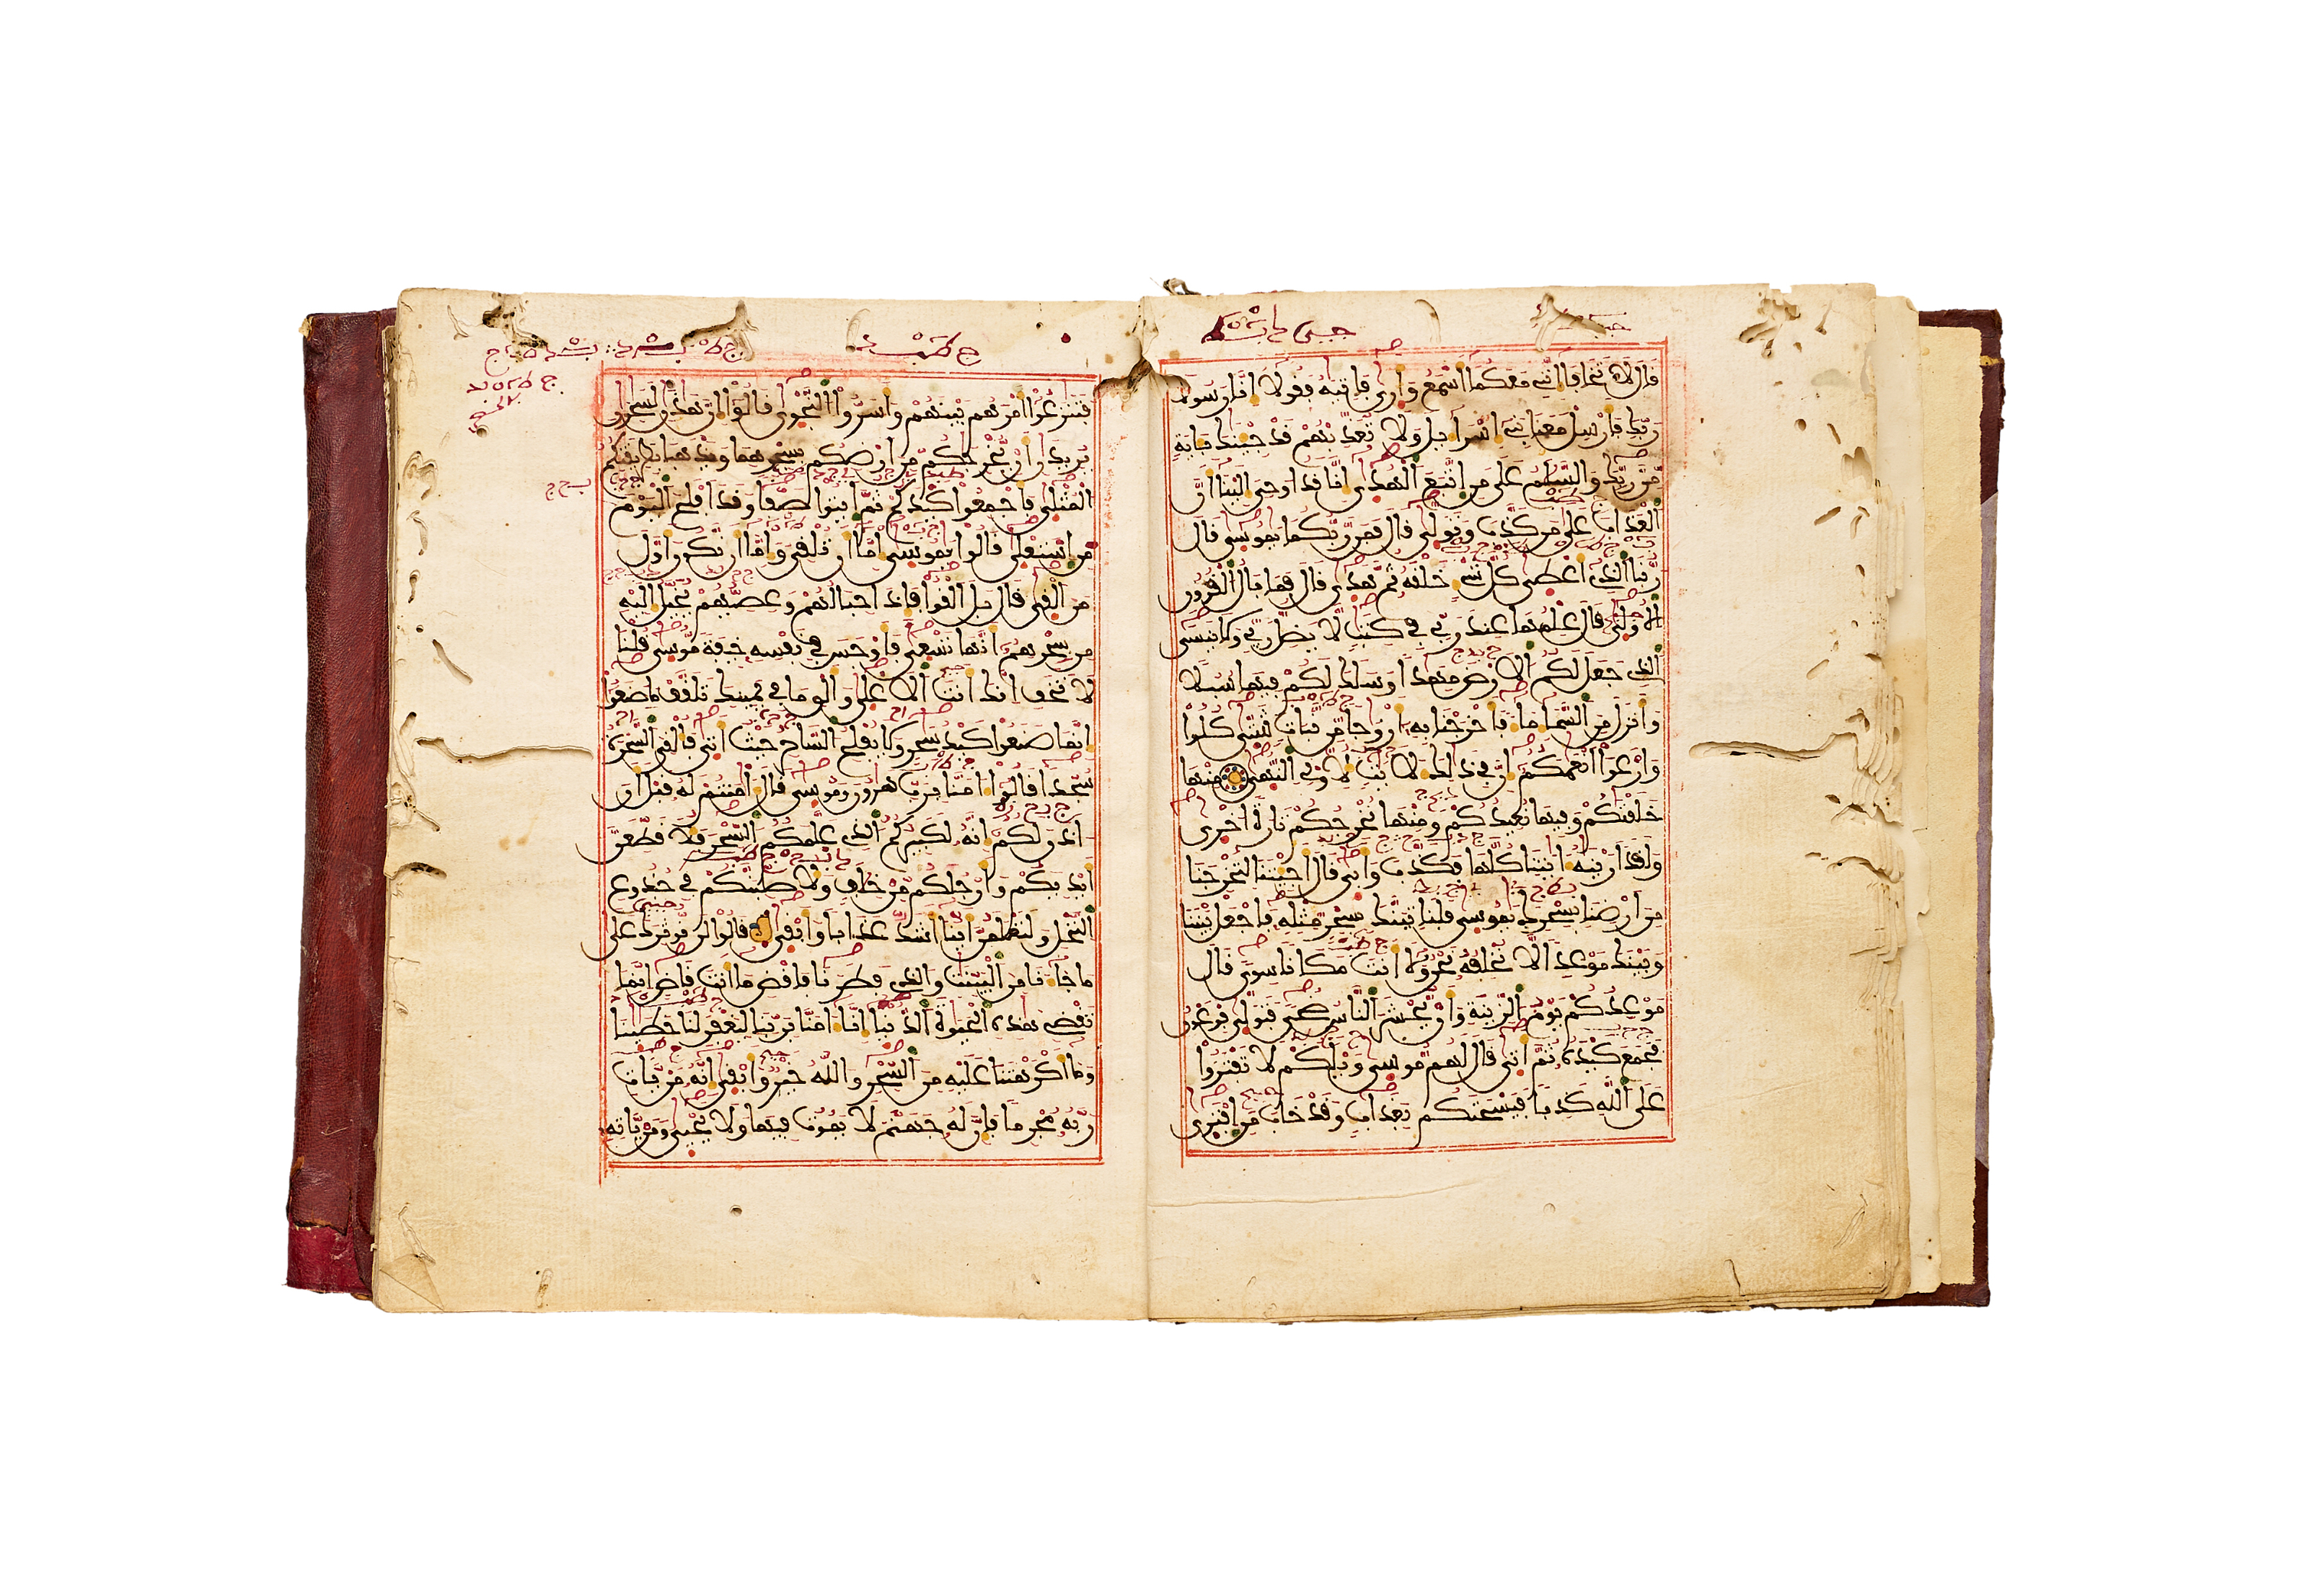 قال لا تخافا انني معكما اسمع وارى فاتيه فقولا انا رسولا
ربك فارسل معنا بني اسراءيل ولا تعذبهم قد جينك بءاية
من ربك والسلم على من اتبع الهدى انا قد اوحي الينا ان
العذاب على من كذب وتولى قال فمن ربكما يموسى قال
ربنا الذي اعطى كل شيء خلقه ثم هدى قال فما بال القرون
الاولى قال علمها عند ربي في كتب لا يضل ربي ولا ينسى
الذي جعل لكم الارض مهدا وسلك لكم فيها سبلا
وانزل من السماء ماء فاخرجنا به ازوجا من نبات شتى كلوا
وارعوا انعمكم ان في ذلك لايت لاولي النهى منها
خلقنكم وفيها نعيدكم ومنها نخرجكم تارة اخرى
ولقد ارينه ايتنا كلها فكذب وابى قال اجيتنا لتخرجنا
من ارضنا بسحرك يموسى فلناتينك بسحر مثله فاجعل بيننا
وبينك موعدا لا نخلفه نحن ولا انت مكانا سوى قال
موعدكم يوم الزينة وان يحشر الناس ضحى فتولى فرعون
فجمع كيده ثم اتى قال لهم موسى ويلكم لا تفتروا
على الله كذبا فيسحتكم بعذاب وقد خاب من افترى
فتنزعوا امرهم بينهم واسروا النجوى قالوا ان هذن لسحرن
يريدن ان يخرجكم من ارضكم بسحرهما ويذهبا بطريقتكم
المثلى فاجمعوا كيدكم ثم ايتوا صفا وقد افلح اليوم
من استعلى قالوا يموسى اما ان تلقي واما ان نكون اول
من القى قال بل القوا فاذا حبالهم وعصيهم يخيل اليه
من سحرهم انها تسعى فاوجس في نفسه خيفة موسى قلنا
لا تخف انك انت الاعلى والق ما في يمينك تلقف ما صنعوا
انما صنعوا كيد سحر ولا يفلح الساحر حيث اتى فالقي السحرة
سجدا قالوا امنا برب هرون وموسى قال امنتم له قبل ان
اذن لكم انه لكبيركم الذي علمكم السحر فلا قطعن
ايديكم وارجلكم من خلف ولاصلبنكم في جذوع
النخل ولتعلمن اينا اشد عذابا وابقى قالوا لن نوثرك على
ما جاءنا من البينت والذي فطرنا فاقض ما انت قاض انما
تقضي هذه الحيوة الدنيا انا امنا بربنا ليغفر لنا خطينا
وما اكرهتنا عليه من السحر والله خير وابقى انه من يات
ربه مجرما فان له جهنم لا يموت فيها ولا يحيى ومن ياته